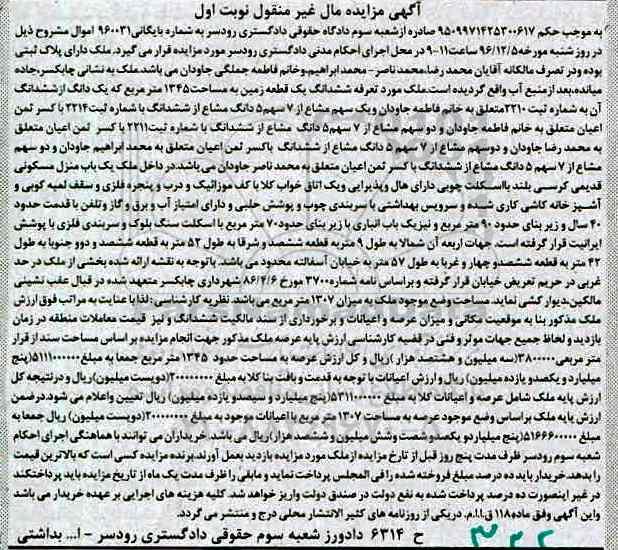 آگهی مزایده مال غیر منقول نوبت اول
به موجب حکم ۹۵۰۹۹۷۱۴۲۵۳۰۰۶۱۷ صادره از شعبه سوم دادگاه حقوقی دادگستری رودسر به شماره بایگانی ۹۶۰۰۳۱ اموال مشروح ذیل
در روز شنبه مورخه ۹۶/۱۲/۵ ساعت ۱۱-۹ در محل اجرای احکام مدنی دادگستری رودسر مورد مزایده قرار می گیرد. ملک دارای پلاک ثبتی
بوده ودر تصرف مالکانه آقایان محمد رضا، محمد ناصر - محمد ابراهیم، وخانم فاطمه جملگی جاودان می باشد. ملک به نشانی چابکسر، جاده
میانده، بعد از منبع آب واقع گردیده است. ملک مورد تعرفه ششدانگ یک قطعه زمین به مساحت ۱۳۴۵ متر مربع که یک دانگ از ششدانگ
آن به شماره ثبت ۲۲۱۰ متعلق به خانم فاطمه جاودان و یک سهم مشاع از ۷ سهم ۵ دانگ مشاع از ششدانگ با شماره ثبت ۲۲۱۴ با کسر ثمن
اعیان متعلق به خانم فاطمه جاودان و دو سهم مشاع از ۷ سهم ۵ دانگ مشاع از ششدانگ با شماره ثبت ۲۲۱۱ با کسر ثمن اعیان متعلق
به محمد رضا جاودان و دوسهم مشاع از ۷ سهم ۵ دانگ مشاع از ششدانگ باکسر ثمن اعیان متعلق به محمد ابراهیم جاودان و دو سهم
مشاع از ۷ سهم ۵ دانگ مشاع از ششدانگ با کسر ثمن اعیان متعلق به محمد ناصر جاودان می باشد. در داخل ملک یک باب منزل مسکونی
قدیمی کرسی بلند با اسکلت چوبی دارای هال و پذیرایی و یک اتاق خواب کلا با کف موزائیک و درب و پنجره فلزی و سقف لمبه کوبی و
آشپز خانه کاشی کاری شده و سرویس بهداشتی با سربندی چوب و پوشش حلبی و دارای امتیاز آب و برق و گاز و تلفن با قدمت حدود
۴۰ سال و زیر بنای حدود ۹۰ متر مربع و نیز یک باب انباری با زیر بنای حدود ۷۰ متر مربع با اسکلت سنگ بلوک و سربندی فلزی با پوشش
ایرانیت قرار گرفته است. جهات اربعه آن شمالا به طول ۹ متر به قطعه ششصد و شرقا به طول ۵۲ متر به قطعه ششصد و دو جنوبا به طول
۴۲ متر به قطعه ششصدو چهار و غربا به طول ۵۷ متر به خیابان آسفالته محدود می باشد. باتوجه به نقشه ارائه شده بخشی از ملک در حد
غربی در حریم تعریض خیابان قرار گرفته و براساس نامه شماره ۳۷۰۰ مورخ ۸۶/۴/۶ شهرداری چابکسر متعهد شده در قبال عقب نشینی
مالکین، دیوار کشی نماید. مساحت وضع موجود ملک به میزان ۱۳۰۷ متر مربع می باشد. نظریه کارشناسی: لذا با عنایت به مراتب فوق ارزش
ملک مذکور بنا به موقعیت مکانی و میزان عرصه و اعیانات و برخورداری از سند مالکیت ششدانگ و نیز قیمت معاملات منطقه در زمان
بازدید و لحاظ جمیع جهات موثر و فنی در قضیه کارشناسی ارزش پایه عرصه ملک مذکور جهت انجام مزایده بر اساس مساحت سند از قرار
متر مربعی ۳۸۰۰۰۰۰ (سه میلیون و هشتصد هزار) ریال و کل ارزش عرصه به مساحت حدود ۱۳۴۵ متر مربع جمعا به مبلغ ۵۱۱۱۰۰۰۰۰۰ (پنج
میلیارد و یکصدو یازده میلیون) ریال و ارزش اعیانات با توجه به قدمت و بافت بنا کلا به مبلغ ۲۰۰۰۰۰۰۰۰ (دویست میلیون) ریال و درنتیجه کل
ارزش پایه ملک شامل عرصه و اعیانات کلا به مبلغ ۵۳۱۱۰۰۰۰۰۰ (پنج میلیارد و سیصدو یازده میلیون) ریال تعیین واعلام می شود. درضمن
ارزش پایه ملک براساس وضع موجود عرصه به مساحت ۱۳۰۷ متر مربع با اعیانات موجود به مبلغ ۲۰۰۰۰۰۰۰۰ (دویست میلیون) ریال جمعا به
مبلغ ۵۱۶۶۶۰۰۰۰۰ (پنج میلیاردو یکصدو شصت وشش میلیون و ششصد هزار) ریال می باشد. خریداران می توانند با هماهنگی اجرای احکام
شعبه سوم رودسر ظرف مدت پنج روز قبل از تارخ مزایده ازملک مورد مزایده بازدید بعمل آورند. برنده مزایده کسی است که بالاترین قیمت
را بدهد. خریدار باید ده درصد مبلغ فروخته شده را فی المجلس پرداخت نماید و مابقی را ظرف مدت یک ماه از تاریخ مزایده باید پرداختکند
در غیر اینصورت ده درصد پرداخت شده به نفع دولت در صندق دولت واریز خواهد شد. کلیه هزینه های اجرایی بر عهده خریدار می باشد
واین آگهی وفق ماده ۱۱۸ ق.ا.ا.م. دریکی از روزنامه های کثیر الانتشار محلی درج و منتشر می گردد.
ح ۶۳۱۴ دادورز شعبه سوم حقوقی دادگستری رودسر - ا... بداشتی
۳۲۲